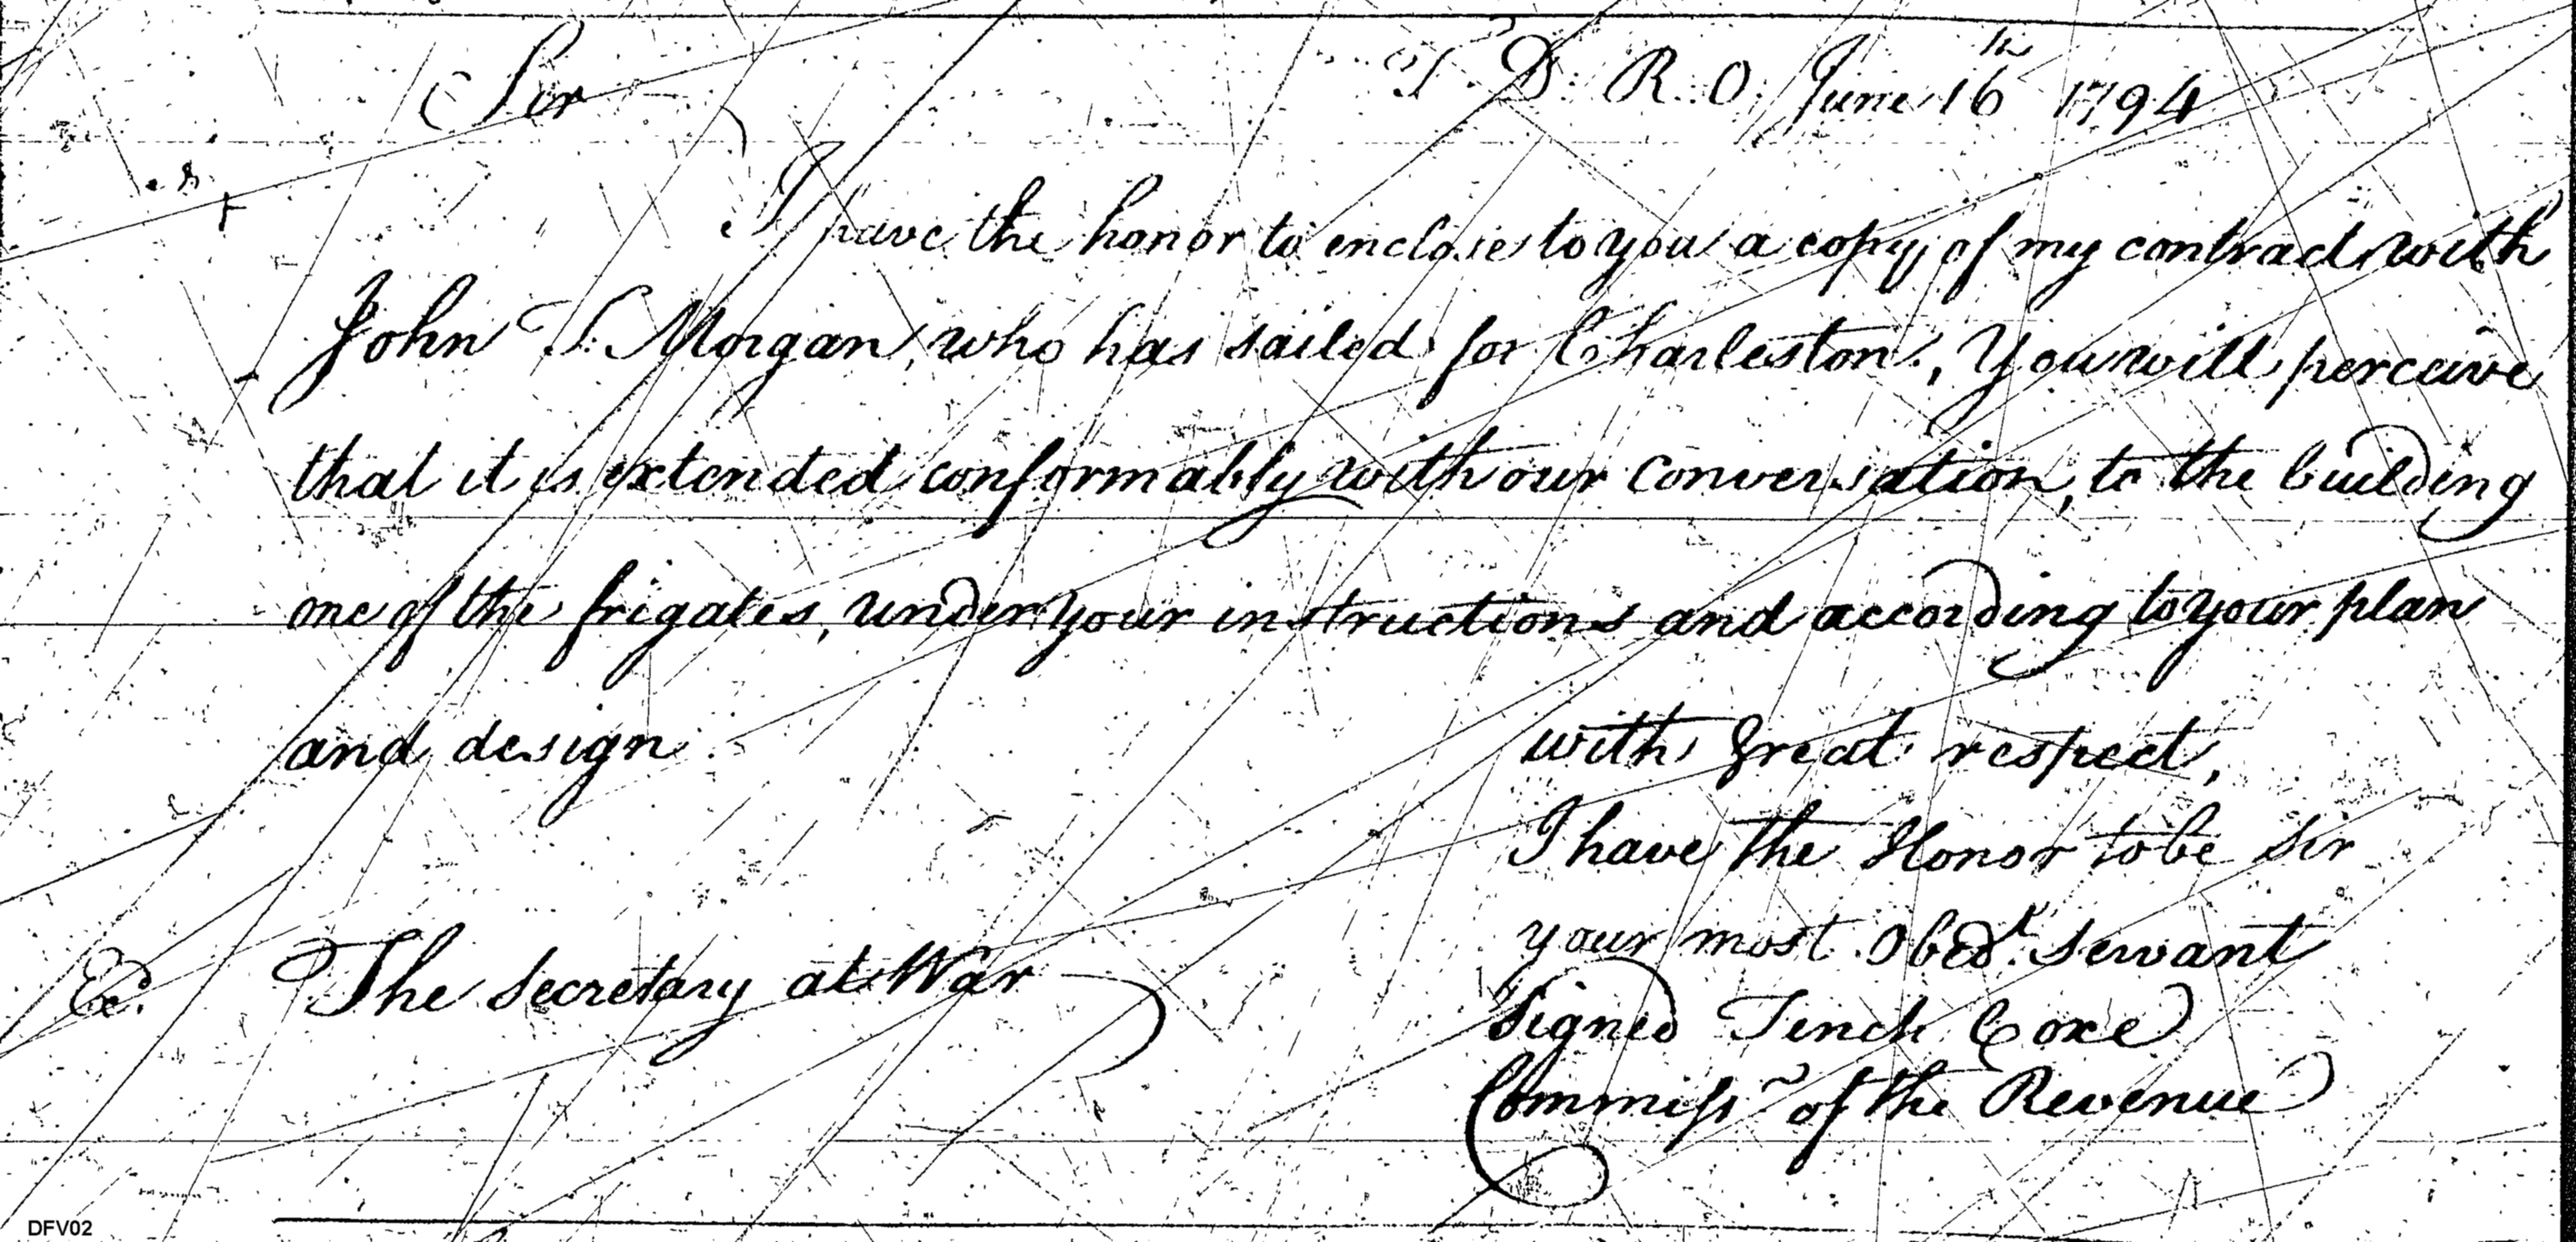 Sir
T. D. R. O. June 16th 1794
I have the honor to enclose to you a copy of my contract with
John T. Morgan, who has sailed for Charleston, You will perceive
that it is extended conformably with our Conversation, to the building
one of the frigates, under your instructions and according to your plan
and design
with Great respect,
I have the Honor to be Sir
your most Obedt. Servant
Ex. The Secretary at War
Signed Tench Coxe
Commissr of the Revenue
DFV02